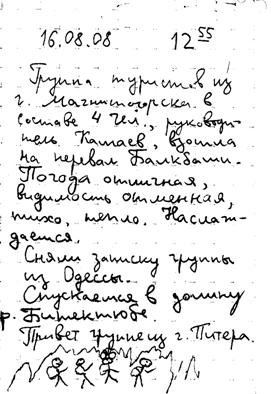 16.08.08 12 55
Группа туристов из
г. Магнитогорска в
составе 4 чел., руководи-
тель Катаев, взошла
на перевал Балкбаши.
Погода отличная,
видимость отменная,
тихо, тепло. Наслаж-
даемся.
Сняли записку группы
из Одессы.
Спускаемся в долину
р. Битектюбе.
Привет группе из г. Питера.